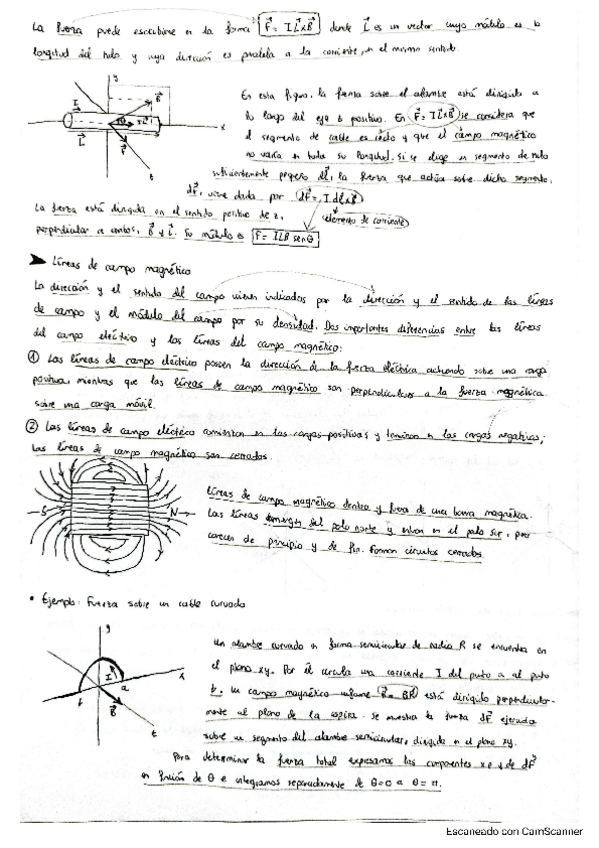 La fuerza puede escribirse en la forma F = I L x B donde L es un vector cuyo módulo es la
longitud del hilo y cuya dirección es paralela a la corriente, en el mismo sentido.
En esta figura, la fuerza sobre el alambre está dirigida a
lo largo del eje z positivo. En F = I L x B se considera que
el segmento de cable es recto y que el campo magnético
no varía en toda su longitud. Si se elige un segmento de hilo
suficientemente pequeño dL, la fuerza que actúa sobre dicho segmento,
dF, viene dada por dF = I dL x B
elemento de corriente
La fuerza está dirigida en el sentido positivo de z,
perpendicular a ambos, B y L. Su módulo es F = I L B sen θ
y
I
B
θ
L
F
x
z
➤ Líneas de campo magnético
La dirección y el sentido del campo vienen indicados por la dirección y el sentido de las líneas
de campo y el módulo del campo por su densidad. Dos importantes diferencias entre las líneas
del campo eléctrico y las líneas del campo magnético:
① Las líneas de campo eléctrico poseen la dirección de la fuerza eléctrica actuando sobre una carga
positiva, mientras que las líneas de campo magnético son perpendiculares a la fuerza magnética
sobre una carga móvil.
② Las líneas de campo eléctrico comienzan en las cargas positivas y terminan en las cargas negativas;
las líneas de campo magnético son cerradas.
S
N
Líneas de campo magnético dentro y fuera de una barra magnética.
Las líneas emergen del polo norte y entran en el polo sur, pero
carecen de principio y de fin. Forman circuitos cerrados.
• Ejemplo: Fuerza sobre un cable curvado
y
x
I
b
a
B
z
Un alambre curvado en forma semicircular de radio R se encuentra en
el plano xy. Por él circula una corriente I del punto a al punto
b. Un campo magnético uniforme B = BK está dirigido perpendicular-
mente al plano de la espira. Se muestra la fuerza dF ejercida
sobre un segmento del alambre semicircular, dirigida en el plano xy.
Para determinar la fuerza total expresamos las componentes x e y de dF
en función de θ e integramos separadamente de θ=0 a θ=π.
Escaneado con CamScanner